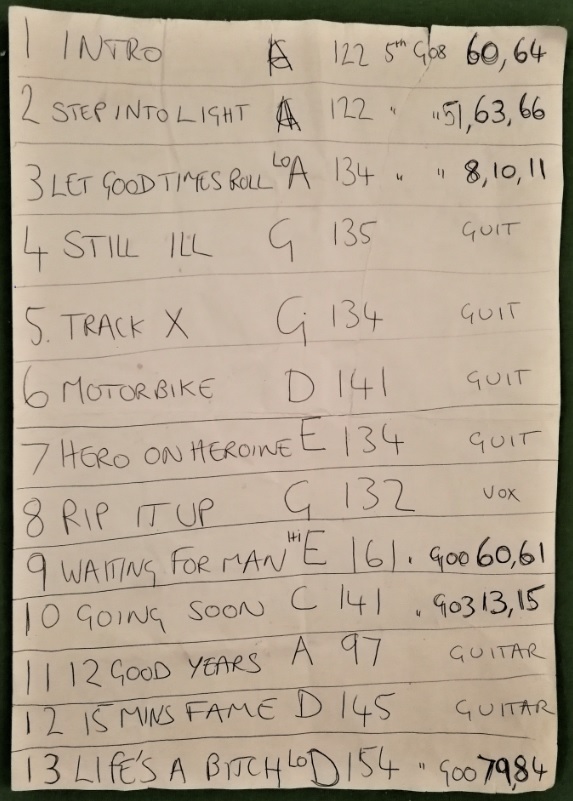 1 INTRO A 122 5th G08 60, 64
2 STEP INTO LIGHT A 122 " " 51, 63, 66
3 LET GOOD TIMES ROLL LO A 134 " " 8, 10, 11
4 STILL ILL G 135 GUIT
5. TRACK X G 134 GUIT
6 MOTORBIKE D 141 GUIT
7 HERO ON HEROINE E 134 GUIT
8 RIP IT UP G 132 VOX
9 WAITING FOR MAN Hi E 161 . G00 60, 61
10 GOING SOON C 141 " G03 13, 15
11 12 GOOD YEARS A 97 GUITAR
12 15 MINS FAME D 145 GUITAR
13 LIFE'S A BITCH LO D 154 " G00 79, 84